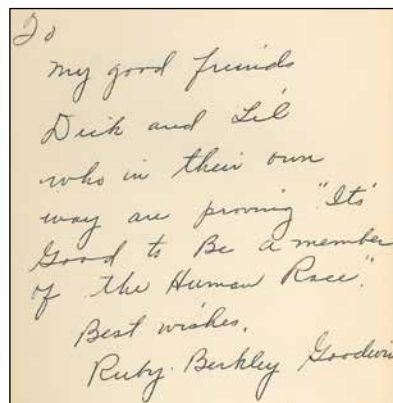 To
my good friends
Dick and Lil
who in their own
way are proving "It's
Good to Be a member
of the Human Race".
Best wishes,
Ruby Berkley Goodwin